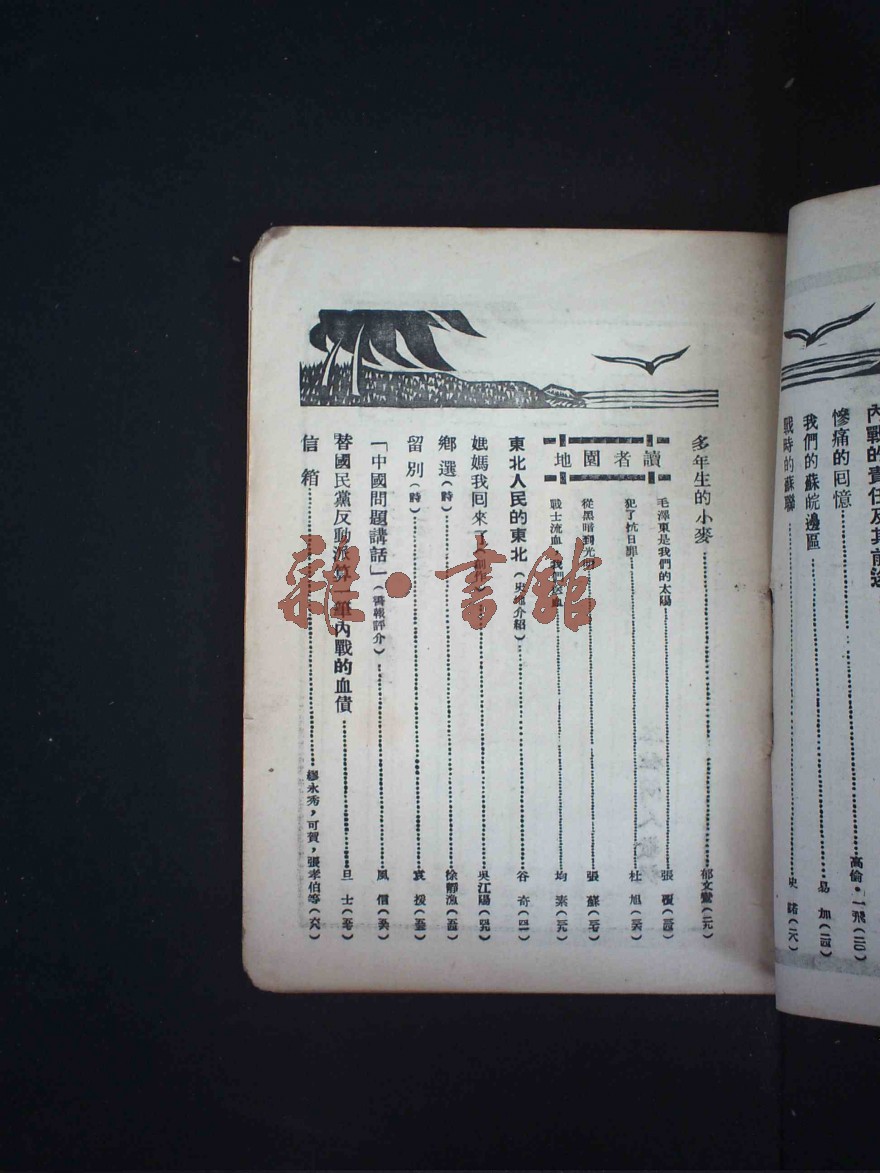 內戰的責任及其前途
慘痛的囘憶……高倫・一飛(二〇)
我們的蘇皖邊區……易加(二四)
戰時的蘇聯……史諾(二六)
多年生的小麥……郁文鸞(二九)
讀者園地
毛澤東是我們的太陽……張
犯了抗日罪……杜旭
從黑暗到光明……張蘇
戰士流血，我們
東北人民的東北(介紹)……谷奇
媽媽我囘來了(創作)……吳江陽
鄉選(詩)……徐靜漁
留別(詩)……袁援
「中國問題講話」(書報評介)……風信
替國民黨反動派算一筆內戰的血債……旦士
信箱……繆永秀，可賀，張孝伯等(六八)
雜・書館